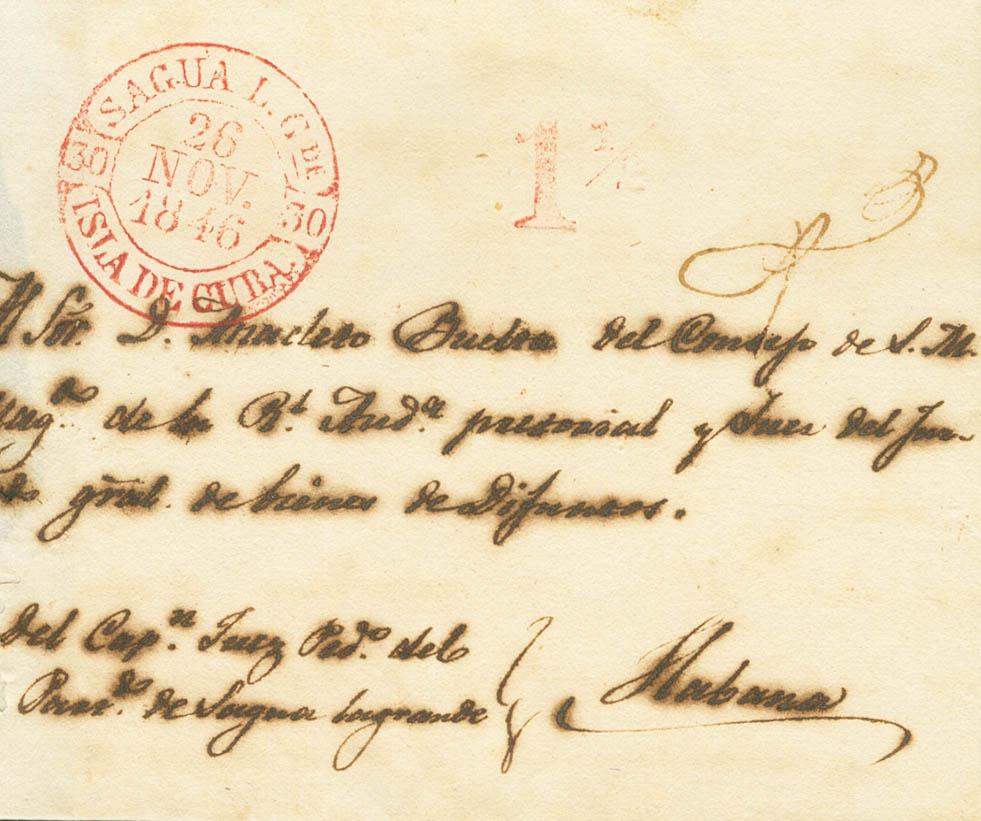 SAGUA L. GDE
30 30
26
NOV.
1846
ISLA DE CUBA.
1 1/2
Sor. D. Anacleto Buelta del Consejo de S. M.
de la Rl. Audª. pretorial y Juez del Juz-
do gral. de bienes de Difuntos.
Del Capn. Juez Pedº. del
Partdo. de Sagua lagrande
Habana